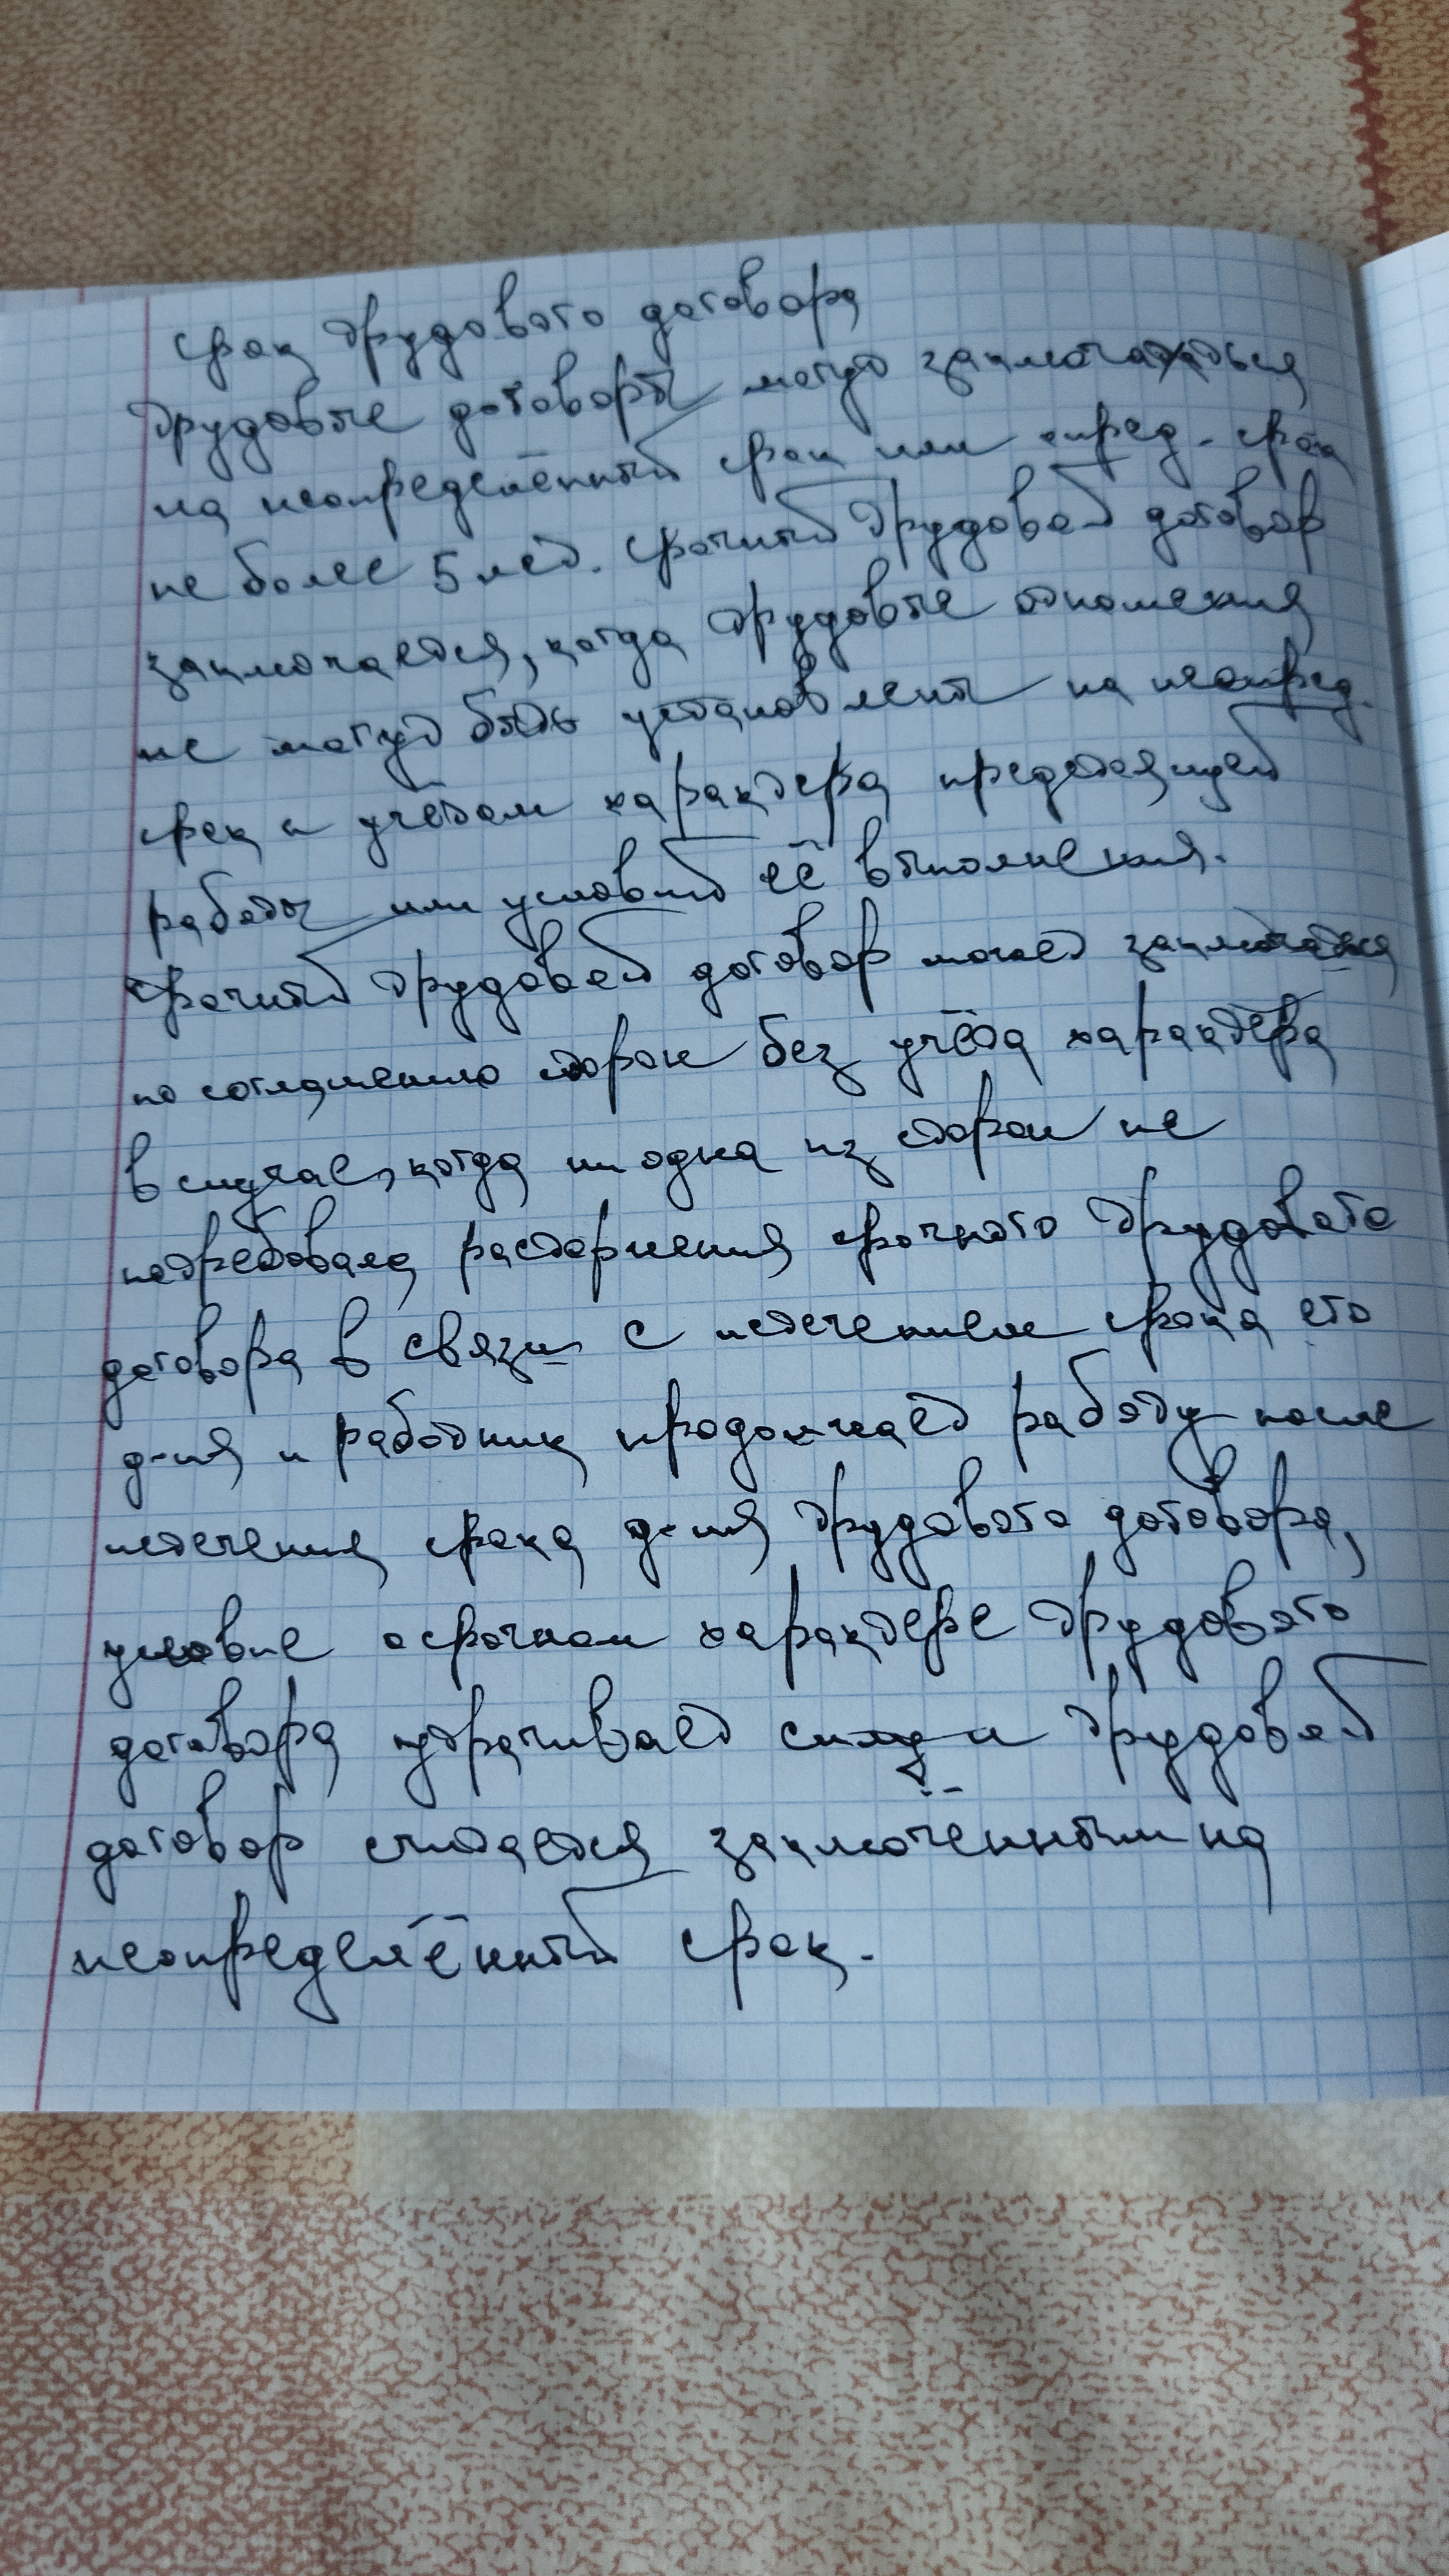 Срок трудового договора
Трудовые договоры могут заключаться
на неопределённый срок или опред. срок
не более 5 лет. Срочный трудовой договор
заключается, когда трудовые отношения
не могут быть установлены на неопред.
срок с учётом характера предстоящей
работы или условий её выполнения.
Срочный трудовой договор может заключаться
по соглашению сторон без учёта характера
в случае, когда ни одна из сторон не
потребовала расторжения срочного трудового
договора в связи с истечением срока его
д-ия и работник продолжает работу после
истечения срока д-ия трудового договора,
условие о срочном характере трудового
договора утрачивает силу и трудовой
договор считается заключённым на
неопределённый срок.